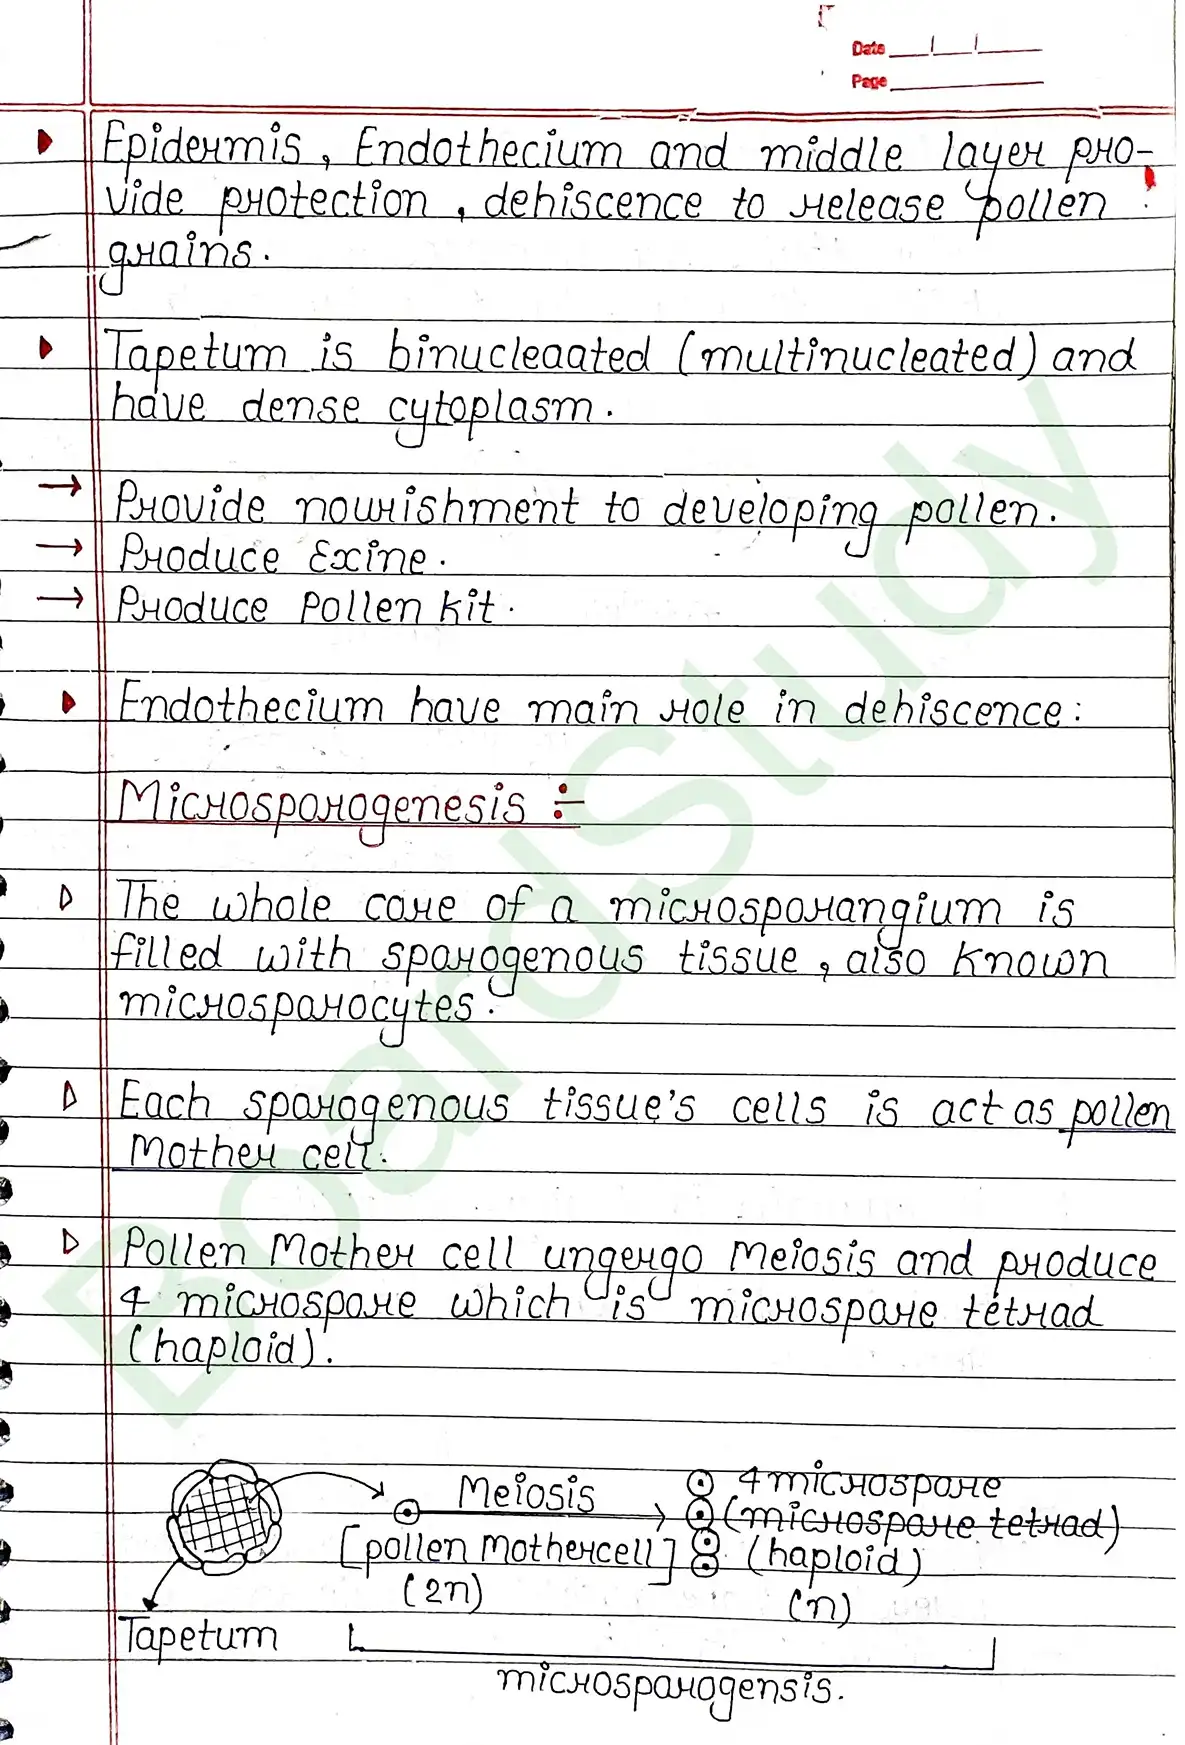 Date
Page
Epidermis, Endothecium and middle layer pro-
vide protection, dehiscence to release pollen
grains.
Tapetum is binucleaated (multinucleated) and
have dense cytoplasm.
→ Provide nourishment to developing pollen.
→ Produce Exine.
→ Produce Pollen kit.
Endothecium have main role in dehiscence:
Microsporogenesis ÷
The whole core of a microsporangium is
filled with sporogenous tissue, also known
microsporocytes.
Each sporogenous tissue's cells is act as pollen
Mother cell.
Pollen Mother cell ungergo Meiosis and produce
4 microspore which is microspore tetrad
(haploid).
Meiosis
4 microspore
(microspore tetrad)
[pollen Mothercell]
(haploid)
(2n)
(n)
Tapetum
microsporogensis.
BoardStudy